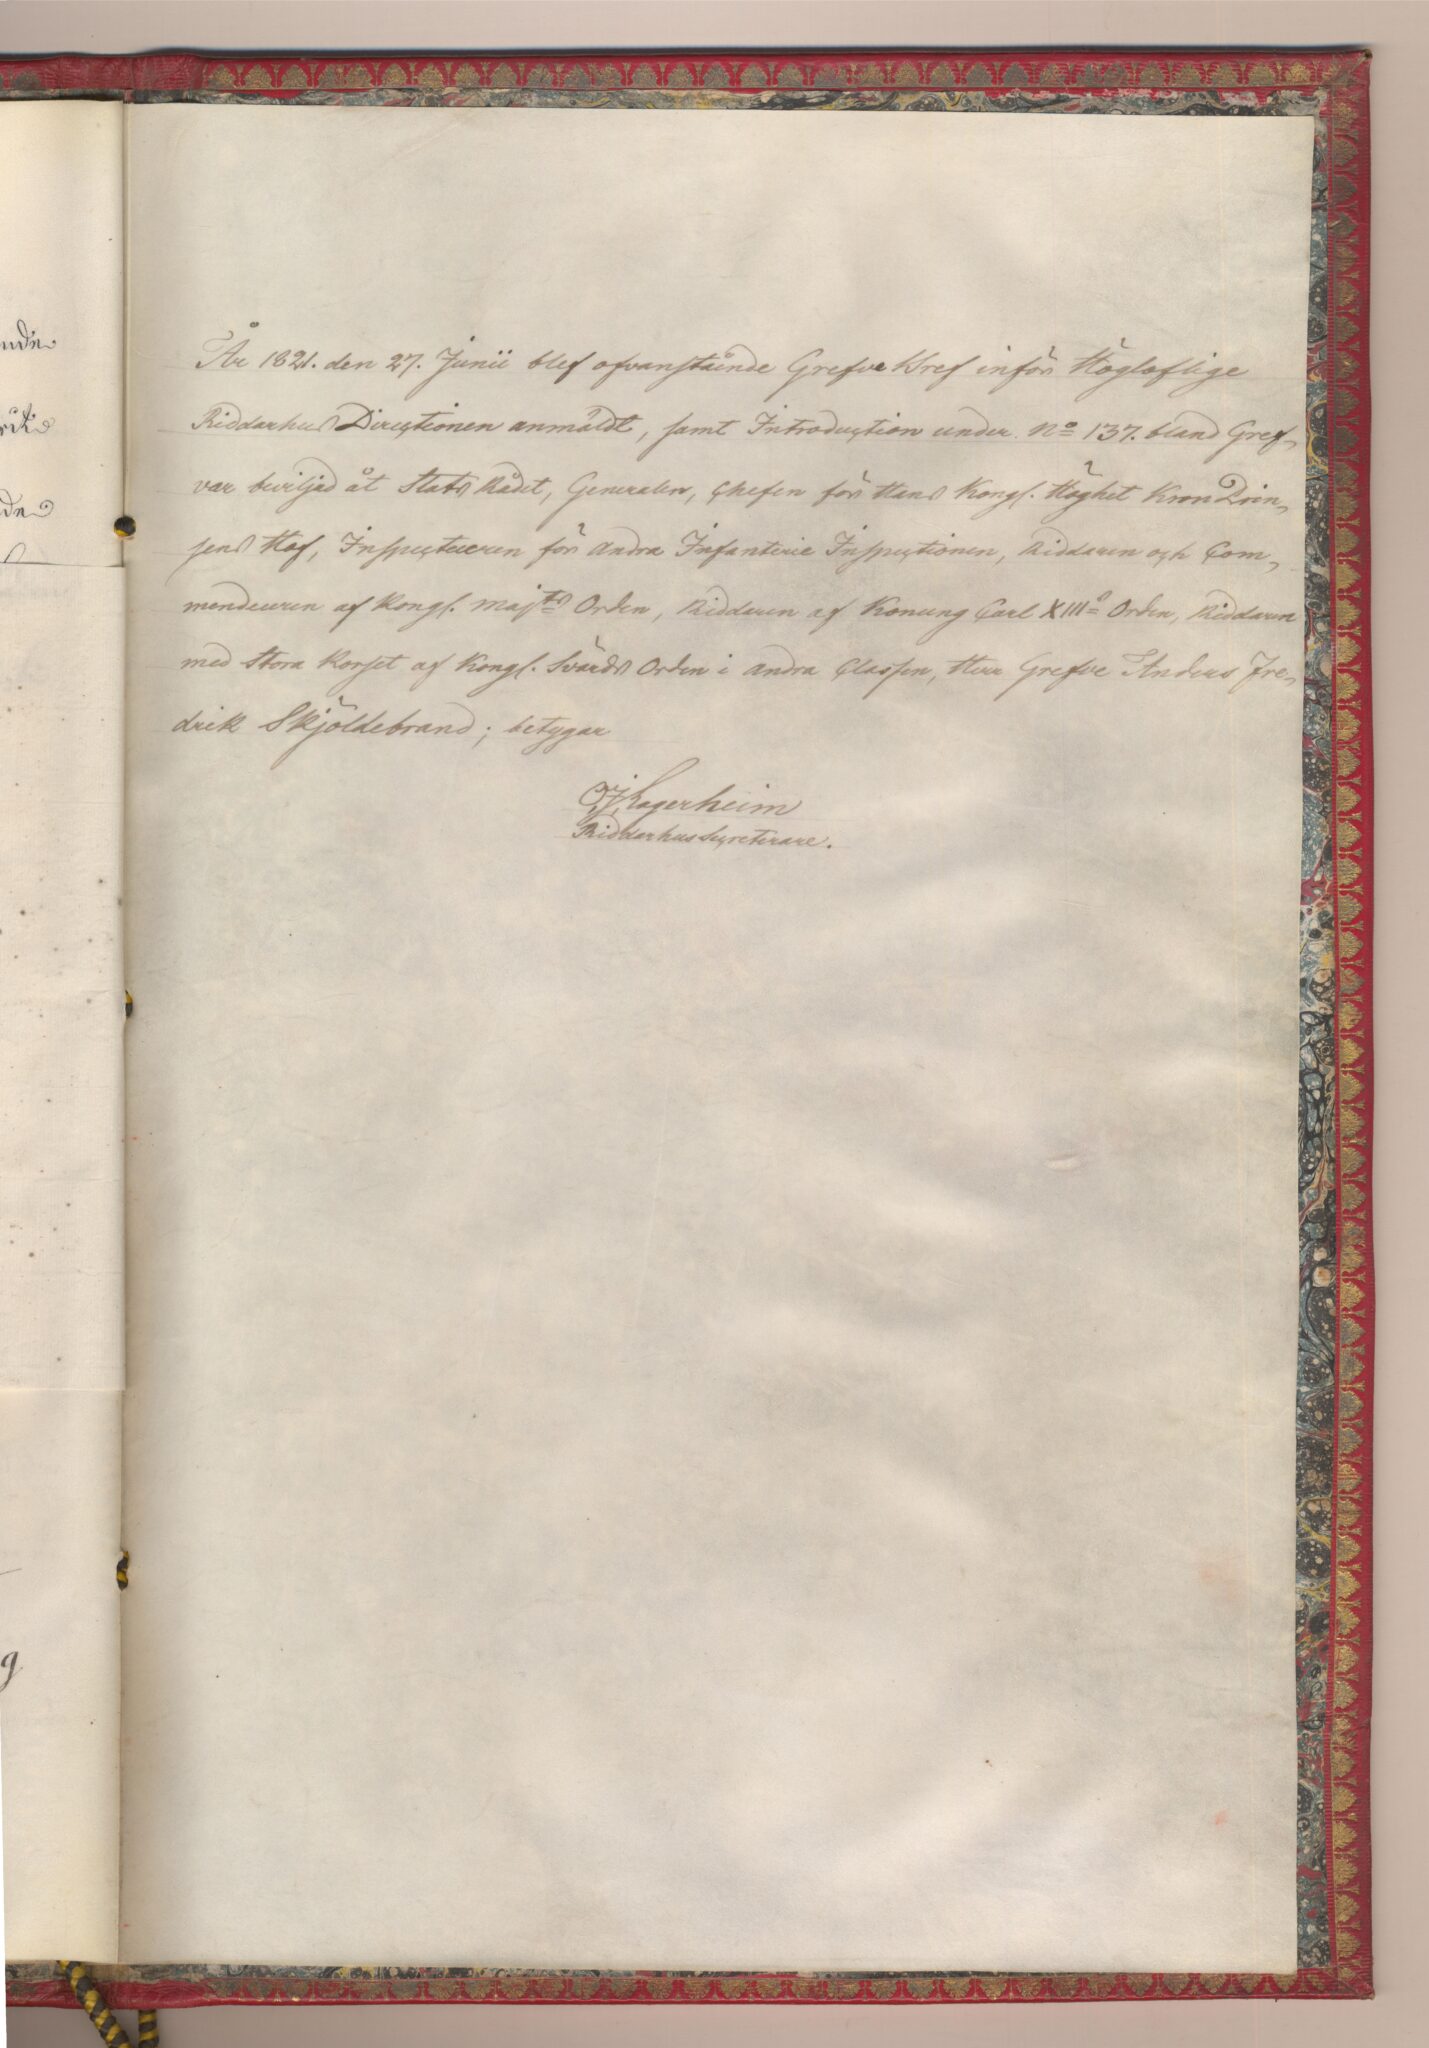 nde
rik
nde
g
År 1821. den 27. Junii blef ofvanstående Grefve Bref inför Högloflige
Riddarhus Directionen anmäldt, samt Introduction under No 137. bland Gref-
var beviljad åt Stats Rådet, Generalen, Chefen för Hans Kongl. Höghet Kron Prin-
sens Hof, Inspecteuren för Andra Infanterie Inspectionen, Riddaren och Com-
mendeuren af Kongl. Majts Orden, Riddaren af Konung Carl XIIIs Orden, Riddaren
med Stora Korset af Kongl. Svärds Orden i andra Classen, Herr Grefve Anders Fre-
drik Skjöldebrand; betygar
Lagerheim
RiddarhusSecreterare.